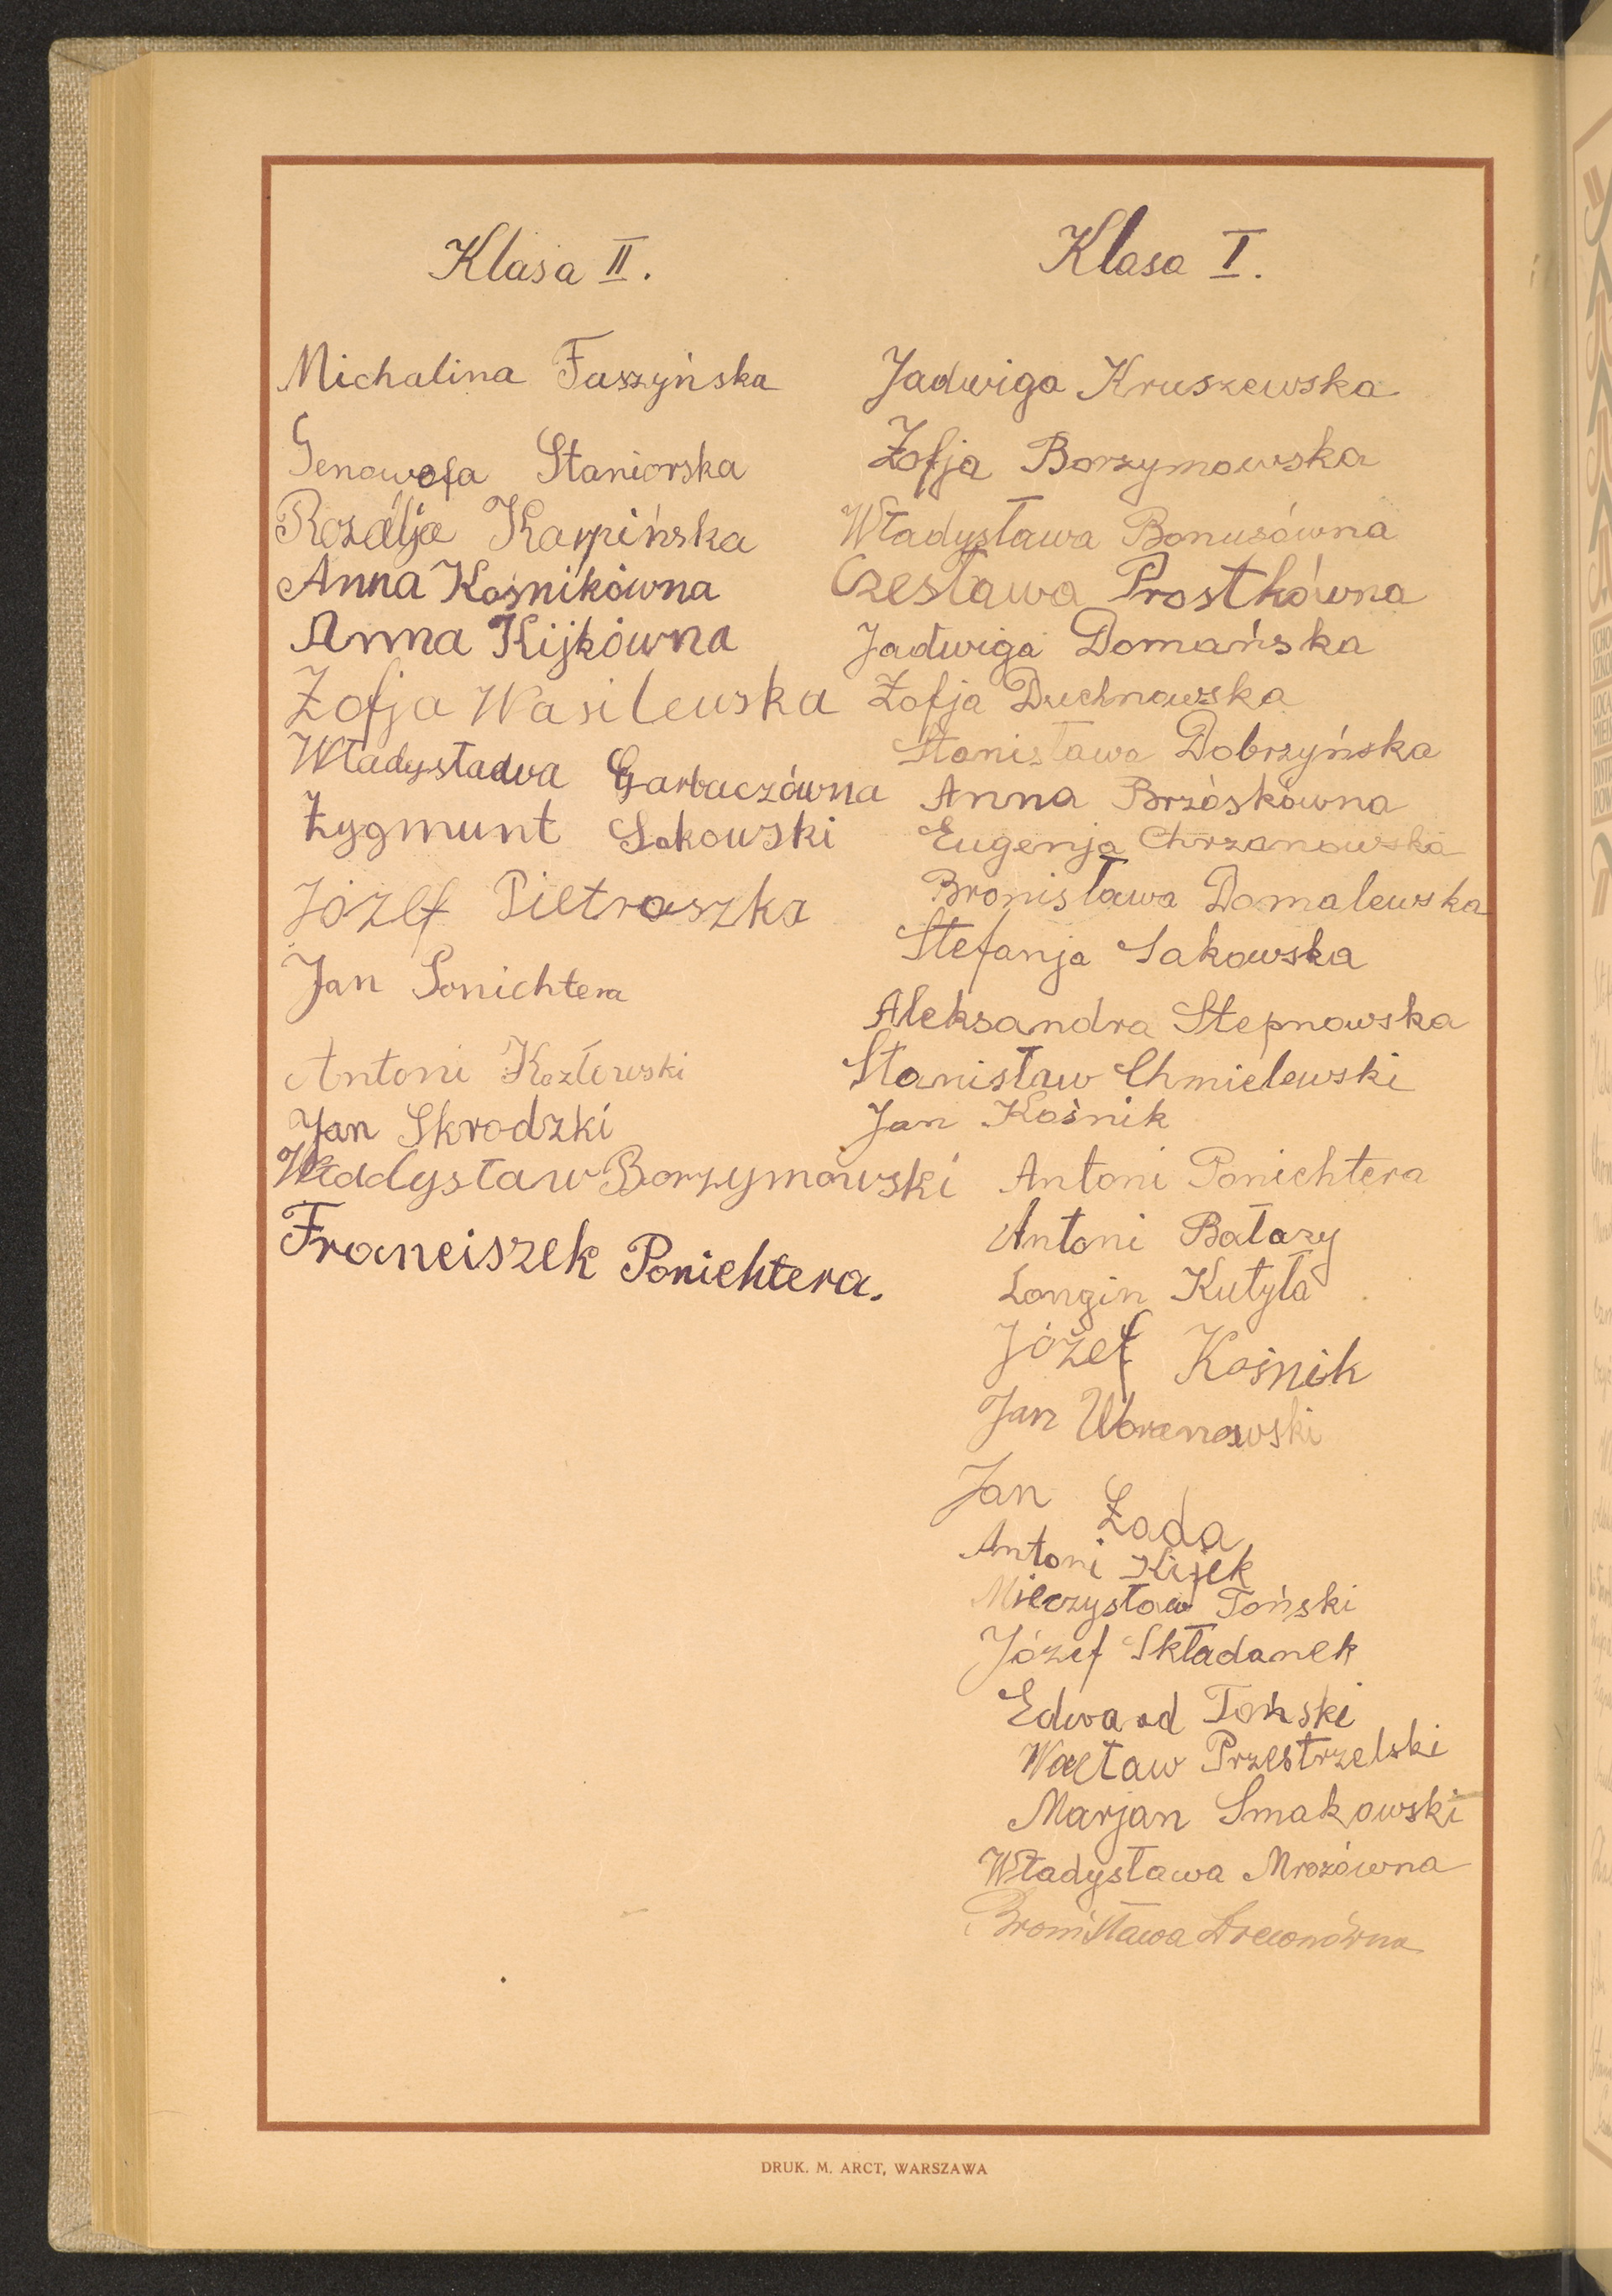 Klasa II.
Michalina Faszyńska
Genowefa Staniorska
Rozalja Karpińska
Anna Kośnikówna
Anna Kijkówna
Zofja Wasilewska
Władysława Garbaczówna
Zygmunt Sakowski
Józef Pietraszka
Jan Ponichtera
Antoni Kozłowski
Jan Skrodzki
Władysław Borzymowski
Franciszek Ponichtera.
Klasa I.
Jadwiga Kruszewska
Zofja Borzymowska
Władysława Bonusówna
Czesława Prostkówna
Jadwiga Domańska
Zofja Duchnowska
Stanisława Dobrzyńska
Anna Brzóskówna
Eugenja Chrzanowska
Bronisława Domalewska
Stefanja Sakowska
Aleksandra Stepnowska
Stanisław Chmielewski
Jan Kośnik
Antoni Ponichtera
Antoni Bałazy
Longin Kutyła
Józef Kośnik
Jan Ubranowski
Jan Żada
Antoni Kijek
Mieczysław Toński
Józef Składanek
Edward Toński
Wacław Przestrzelski
Marjan Smakowski
Władysława Mrozówna
Bronisława
DRUK. M. ARCT, WARSZAWA